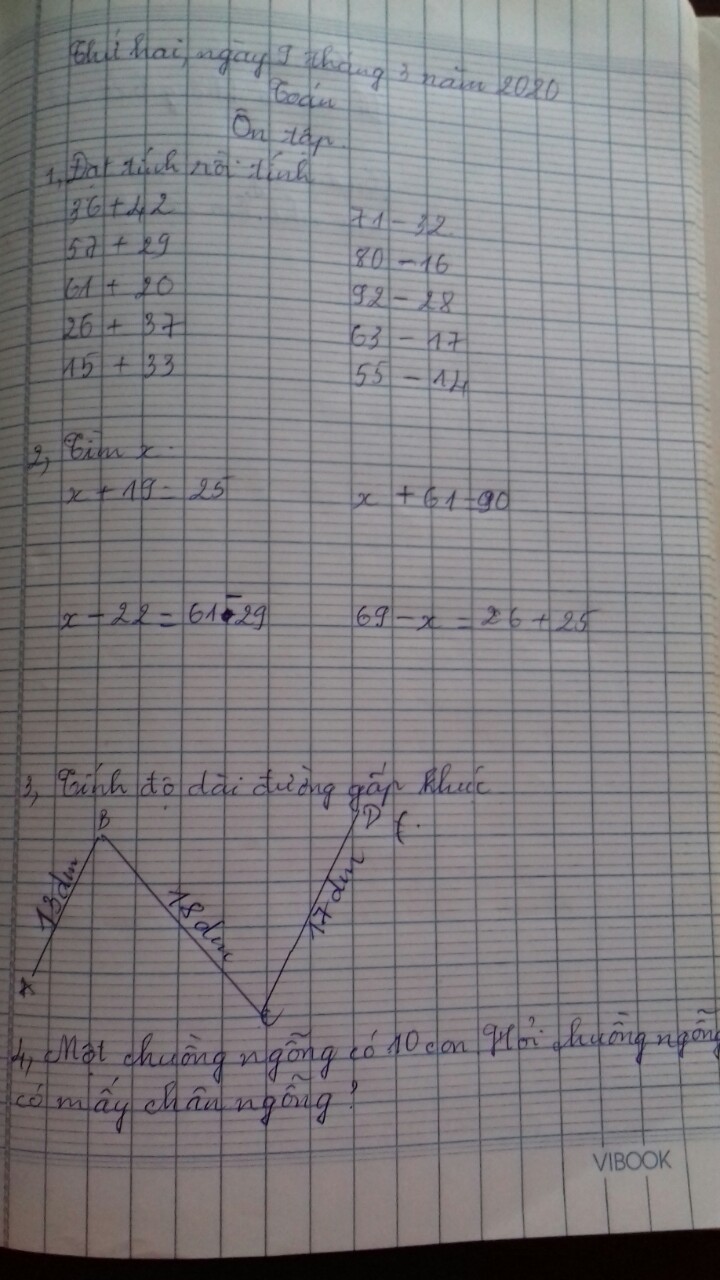 Thứ hai, ngày 9 tháng 3 năm 2020
Toán
Ôn tập.
1, Đặt tính rồi tính
36 + 42 71 - 32
57 + 29 80 - 16
61 + 20 92 - 28
26 + 37 63 - 17
15 + 33 55 - 14
2, Tìm x.
x + 19 = 25 x + 61 = 90
x - 22 = 61 - 29 69 - x = 26 + 25
3, Tính độ dài đường gấp khúc
B D
13dm 18dm 17dm
A C
4, Một chuồng ngỗng có 10 con Hỏi chuồng ngỗng
có mấy chân ngỗng?
VIBOOK